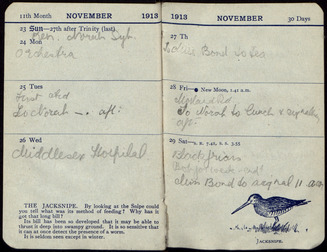 11th Month NOVEMBER 1913
23 Sun—27th after Trinity (last)
24 Mon
Orchestra
25 Tues
First aid
to Norah — aft:
26 Wed
Middlesex Hospital
THE JACKSNIPE. By looking at the Snipe could
you tell what was its method of feeding? Why has it
got that long bill?
Its bill has been so developed that it may be able to
thrust it deep into swampy ground. It is so sensitive that
it can at once detect the presence of a worm.
It is seldom seen except in winter.
1913 NOVEMBER 30 Days
27 Th
Bond to tea
28 Fri—● New Moon, 1.41 a.m.
To Norah to lunch &
aft:
29 Sat—s. r. 7.42, s. 3.55
Blackfriars
Bond to signal 11 a.m.
JACKSNIPE.